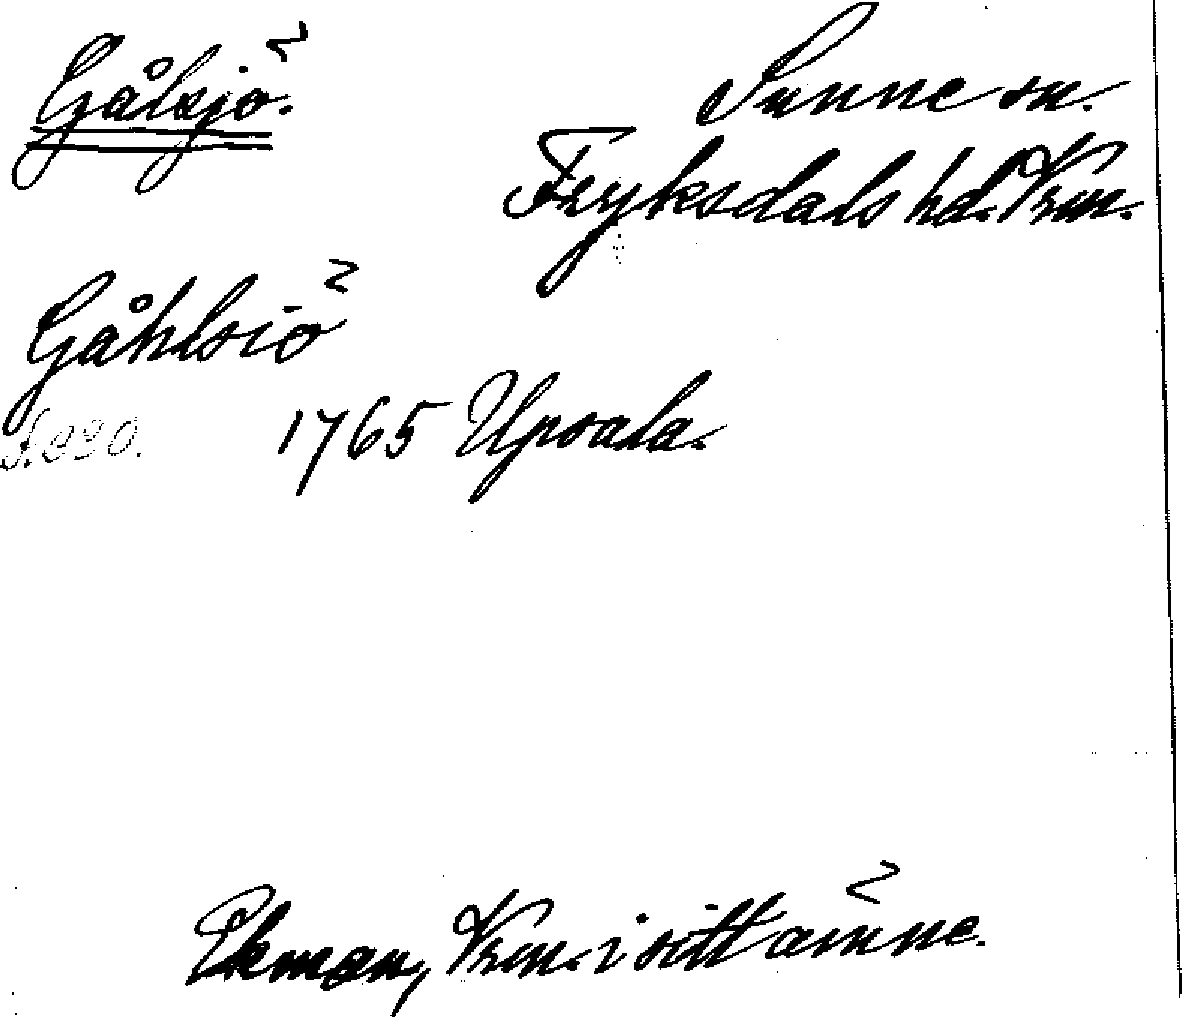 Gålsjö.
Sunne sn.
Fryksdals hd. Vrm.
Gåhlsiö
1765 Upsala.
Ekman, Vrm. i sitt ämne.